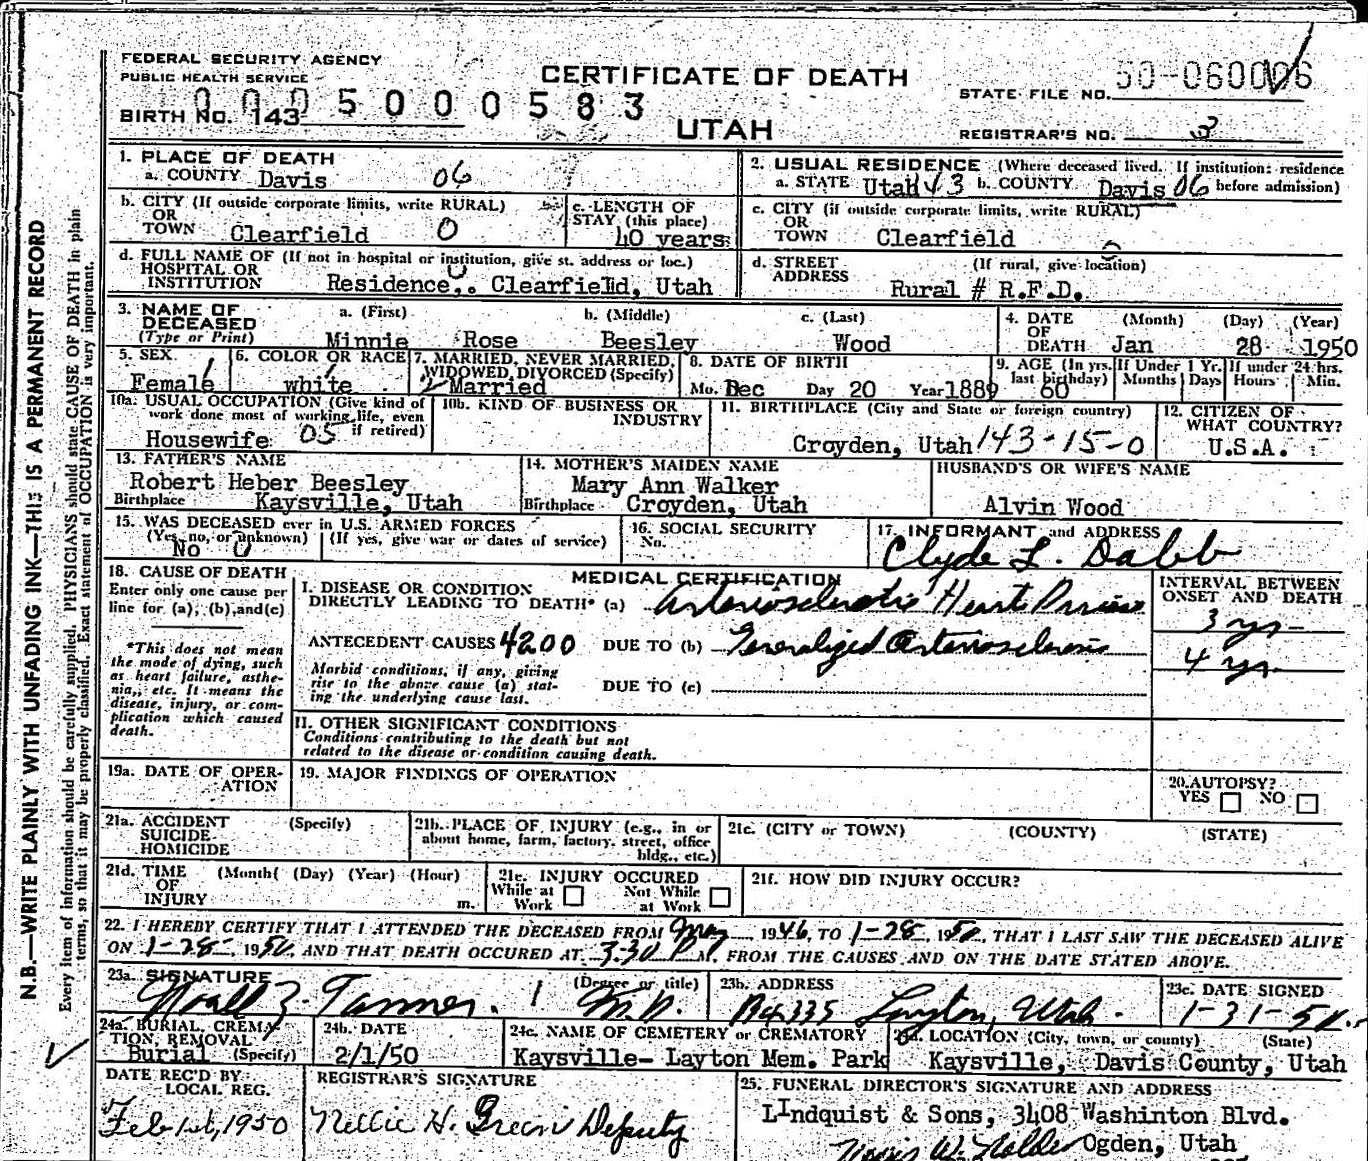 FEDERAL SECURITY AGENCY
PUBLIC HEALTH SERVICE
CERTIFICATE OF DEATH
50-060006
STATE FILE NO.
0005000583
BIRTH NO. 143
UTAH
REGISTRAR'S NO. 3
1. PLACE OF DEATH
a. COUNTY Davis 06
2. USUAL RESIDENCE (Where deceased lived. If institution: residence
a. STATE Utah 43 b. COUNTY Davis 06 before admission)
b. CITY (If outside corporate limits, write RURAL)
OR
TOWN Clearfield 0
c. LENGTH OF
STAY (this place)
40 years
c. CITY (if outside corporate limits, write RURAL)
OR
TOWN Clearfield
d. FULL NAME OF (If not in hospital or institution, give st. address or loc.)
HOSPITAL OR
INSTITUTION Residence,. Clearfield, Utah
d. STREET (If rural, give location)
ADDRESS
Rural # R.F.D.
3. NAME OF a. (First) b. (Middle) c. (Last)
DECEASED
(Type or Print) Minnie Rose Beesley Wood
4. DATE (Month) (Day) (Year)
OF
DEATH Jan 28 1950
5. SEX
Female 1
6. COLOR OR RACE
white 1
7. MARRIED, NEVER MARRIED,
WIDOWED, DIVORCED (Specify)
2 Married
8. DATE OF BIRTH
Mo. Dec Day 20 Year 1889
9. AGE (In yrs. last birthday)
60
If Under 1 Yr.
Months Days
If under 24 hrs.
Hours Min.
10a. USUAL OCCUPATION (Give kind of
work done most of working life, even
if retired)
Housewife 05
10b. KIND OF BUSINESS OR
INDUSTRY
11. BIRTHPLACE (City and State or foreign country)
Croyden, Utah 143-15-0
12. CITIZEN OF
WHAT COUNTRY?
U.S.A.
13. FATHER'S NAME
Robert Heber Beesley
Birthplace Kaysville, Utah
14. MOTHER'S MAIDEN NAME
Mary Ann Walker
Birthplace Croyden, Utah
HUSBAND'S OR WIFE'S NAME
Alvin Wood
15. WAS DECEASED ever in U.S. ARMED FORCES
(Yes, no, or unknown) (If yes, give war or dates of service)
No 0
16. SOCIAL SECURITY
No.
17. INFORMANT and ADDRESS
Clyde L. Dabb
18. CAUSE OF DEATH
Enter only one cause per
line for (a), (b), and (c)
*This does not mean
the mode of dying, such
as heart failure, asthe-
nia, etc. It means the
disease, injury, or com-
plication which caused
death.
MEDICAL CERTIFICATION
I. DISEASE OR CONDITION
DIRECTLY LEADING TO DEATH* (a) Arteriosclerotic Heart Disease
ANTECEDENT CAUSES 4200 DUE TO (b) Generalized Arteriosclerosis
Morbid conditions, if any, giving
rise to the above cause (a) stat-
ing the underlying cause last.
DUE TO (c)
INTERVAL BETWEEN
ONSET AND DEATH
3 yrs
4 yrs
II. OTHER SIGNIFICANT CONDITIONS
Conditions contributing to the death but not
related to the disease or condition causing death.
19a. DATE OF OPER-
ATION
19. MAJOR FINDINGS OF OPERATION
20. AUTOPSY?
YES NO
21a. ACCIDENT (Specify)
SUICIDE
HOMICIDE
21b. PLACE OF INJURY (e.g., in or
about home, farm, factory, street, office
bldg., etc.)
21c. (CITY or TOWN) (COUNTY) (STATE)
21d. TIME (Month( (Day) (Year) (Hour)
OF
INJURY m.
21e. INJURY OCCURED
While at Work Not While at Work
21f. HOW DID INJURY OCCUR?
22. I HEREBY CERTIFY THAT I ATTENDED THE DECEASED FROM May 1946, TO 1-28, 1950, THAT I LAST SAW THE DECEASED ALIVE
ON 1-28-, 1950, AND THAT DEATH OCCURED AT 3:30 P M. FROM THE CAUSES AND ON THE DATE STATED ABOVE.
23a. SIGNATURE (Degree or title)
Noall Z. Tanner. 1 M.D.
23b. ADDRESS
Box 335 Layton, Utah.
23c. DATE SIGNED
1-31-50
24a. BURIAL, CREMA-
TION, REMOVAL
Burial (Specify)
24b. DATE
2/1/50
24c. NAME OF CEMETERY or CREMATORY
Kaysville- Layton Mem. Park
24d. LOCATION (City, town, or county) (State)
Kaysville, Davis County, Utah
DATE REC'D BY
LOCAL REG.
Feb 1st, 1950
REGISTRAR'S SIGNATURE
Nellie H. Green Deputy
25. FUNERAL DIRECTOR'S SIGNATURE AND ADDRESS
LIndquist & Sons, 3408 Washinton Blvd.
Ogden, Utah
N.B.—WRITE PLAINLY WITH UNFADING INK—THIS IS A PERMANENT RECORD
Every item of information should be carefully supplied. PHYSICIANS should state CAUSE OF DEATH in plain
terms, so that it may be properly classified. Exact statement of OCCUPATION is very important.